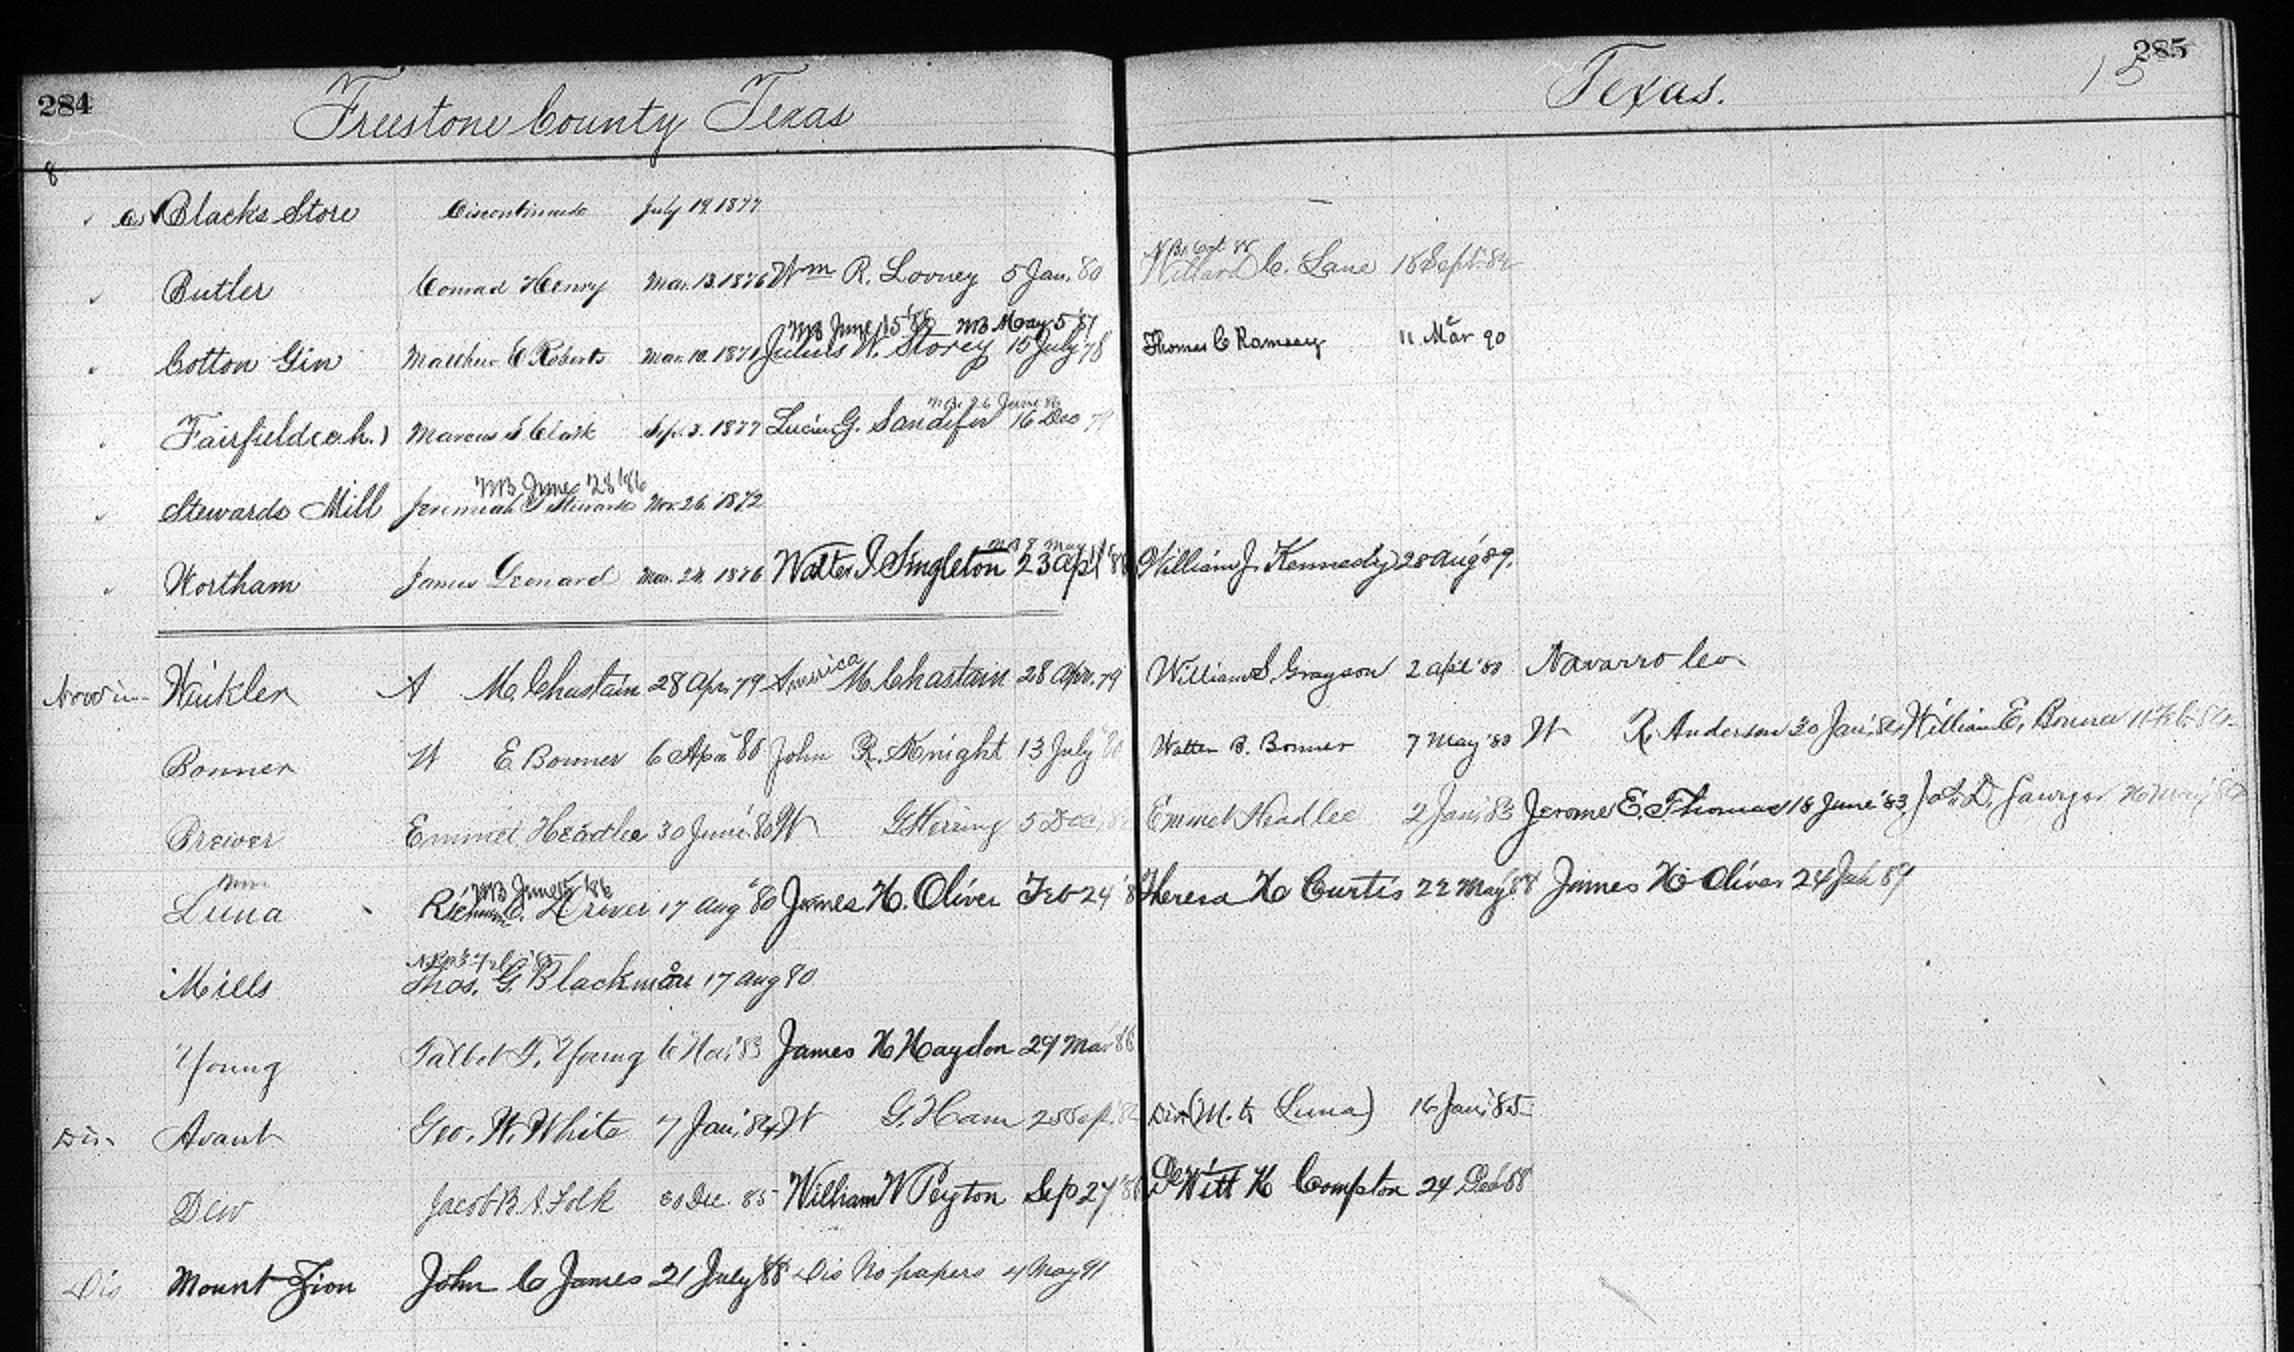 284 Freestone County Texas
Texas. 285
15
8
Blacks Store Discontinued July 19. 1877
Butler Conrad Henry Mar. 13. 1876 Wm R. Looney 5 Jan. 80 Willard C. Lane 18 Sept. 82
MB June 15 '86 MB May 5 '87
Cotton Gin Matthew C Roberts Mar. 10. 1871 Julius W. Storey 15 July 78 Thomas C Ramsey 11 Mar 90
26 June
Fairfield (c.h.) Marcus S Clark Sep. 3. 1877 Lucin G. Sandifer 16 Dec
MB June 28 '86
Stewards Mill Jeremiah Steward Nov. 26. 1872
May
Wortham James Leonard Mar. 24. 1876 Walter I Singleton 23 Apl William J. Kennedy 28 Aug '89.
Now in Winkler A M. Chastain 28 Apr. 79 America M. Chastain 28 Apr. 79 William S. Grayson 2 April '80 Navarro Co
Bonner W E. Bonner 6 Apr '80 John R. Knight 13 July '80 Walter B. Bonner 7 May '80 W R. Anderson 30 Jan, '84 William E. Bonner 11 Feb 84
Brewer Emmet Headlee 30 June '80 W G Herring 5 Dec, Emmet Headlee 2 Jan, '83 Jerome E. Thomas 18 June '83 D. Sawyer
MB June 15 '86
Luna Richmond C. Driver 17 Aug '80 James H. Oliver Feb 24 Theresa H Curtis 22 May '88 James H Oliver 24 Jan 89
Mills Thos. G. Blackmore 17 Aug 80
Young Talbot T. Young '83 James H Haydon 29 Mar '86
Dis Avant Geo. W. White 7 Jan, '84 W G. Ham 25 Sep. Dis (M. to Luna) 16 Jan, '85
Dew Jacob B. A. Folk 30 Dec. 85 William W Peyton Sep 27 DeWitt H Compton 24 Dec '88
Dis Mount Zion John C James 21 July '88 Dis No papers 4 May 91